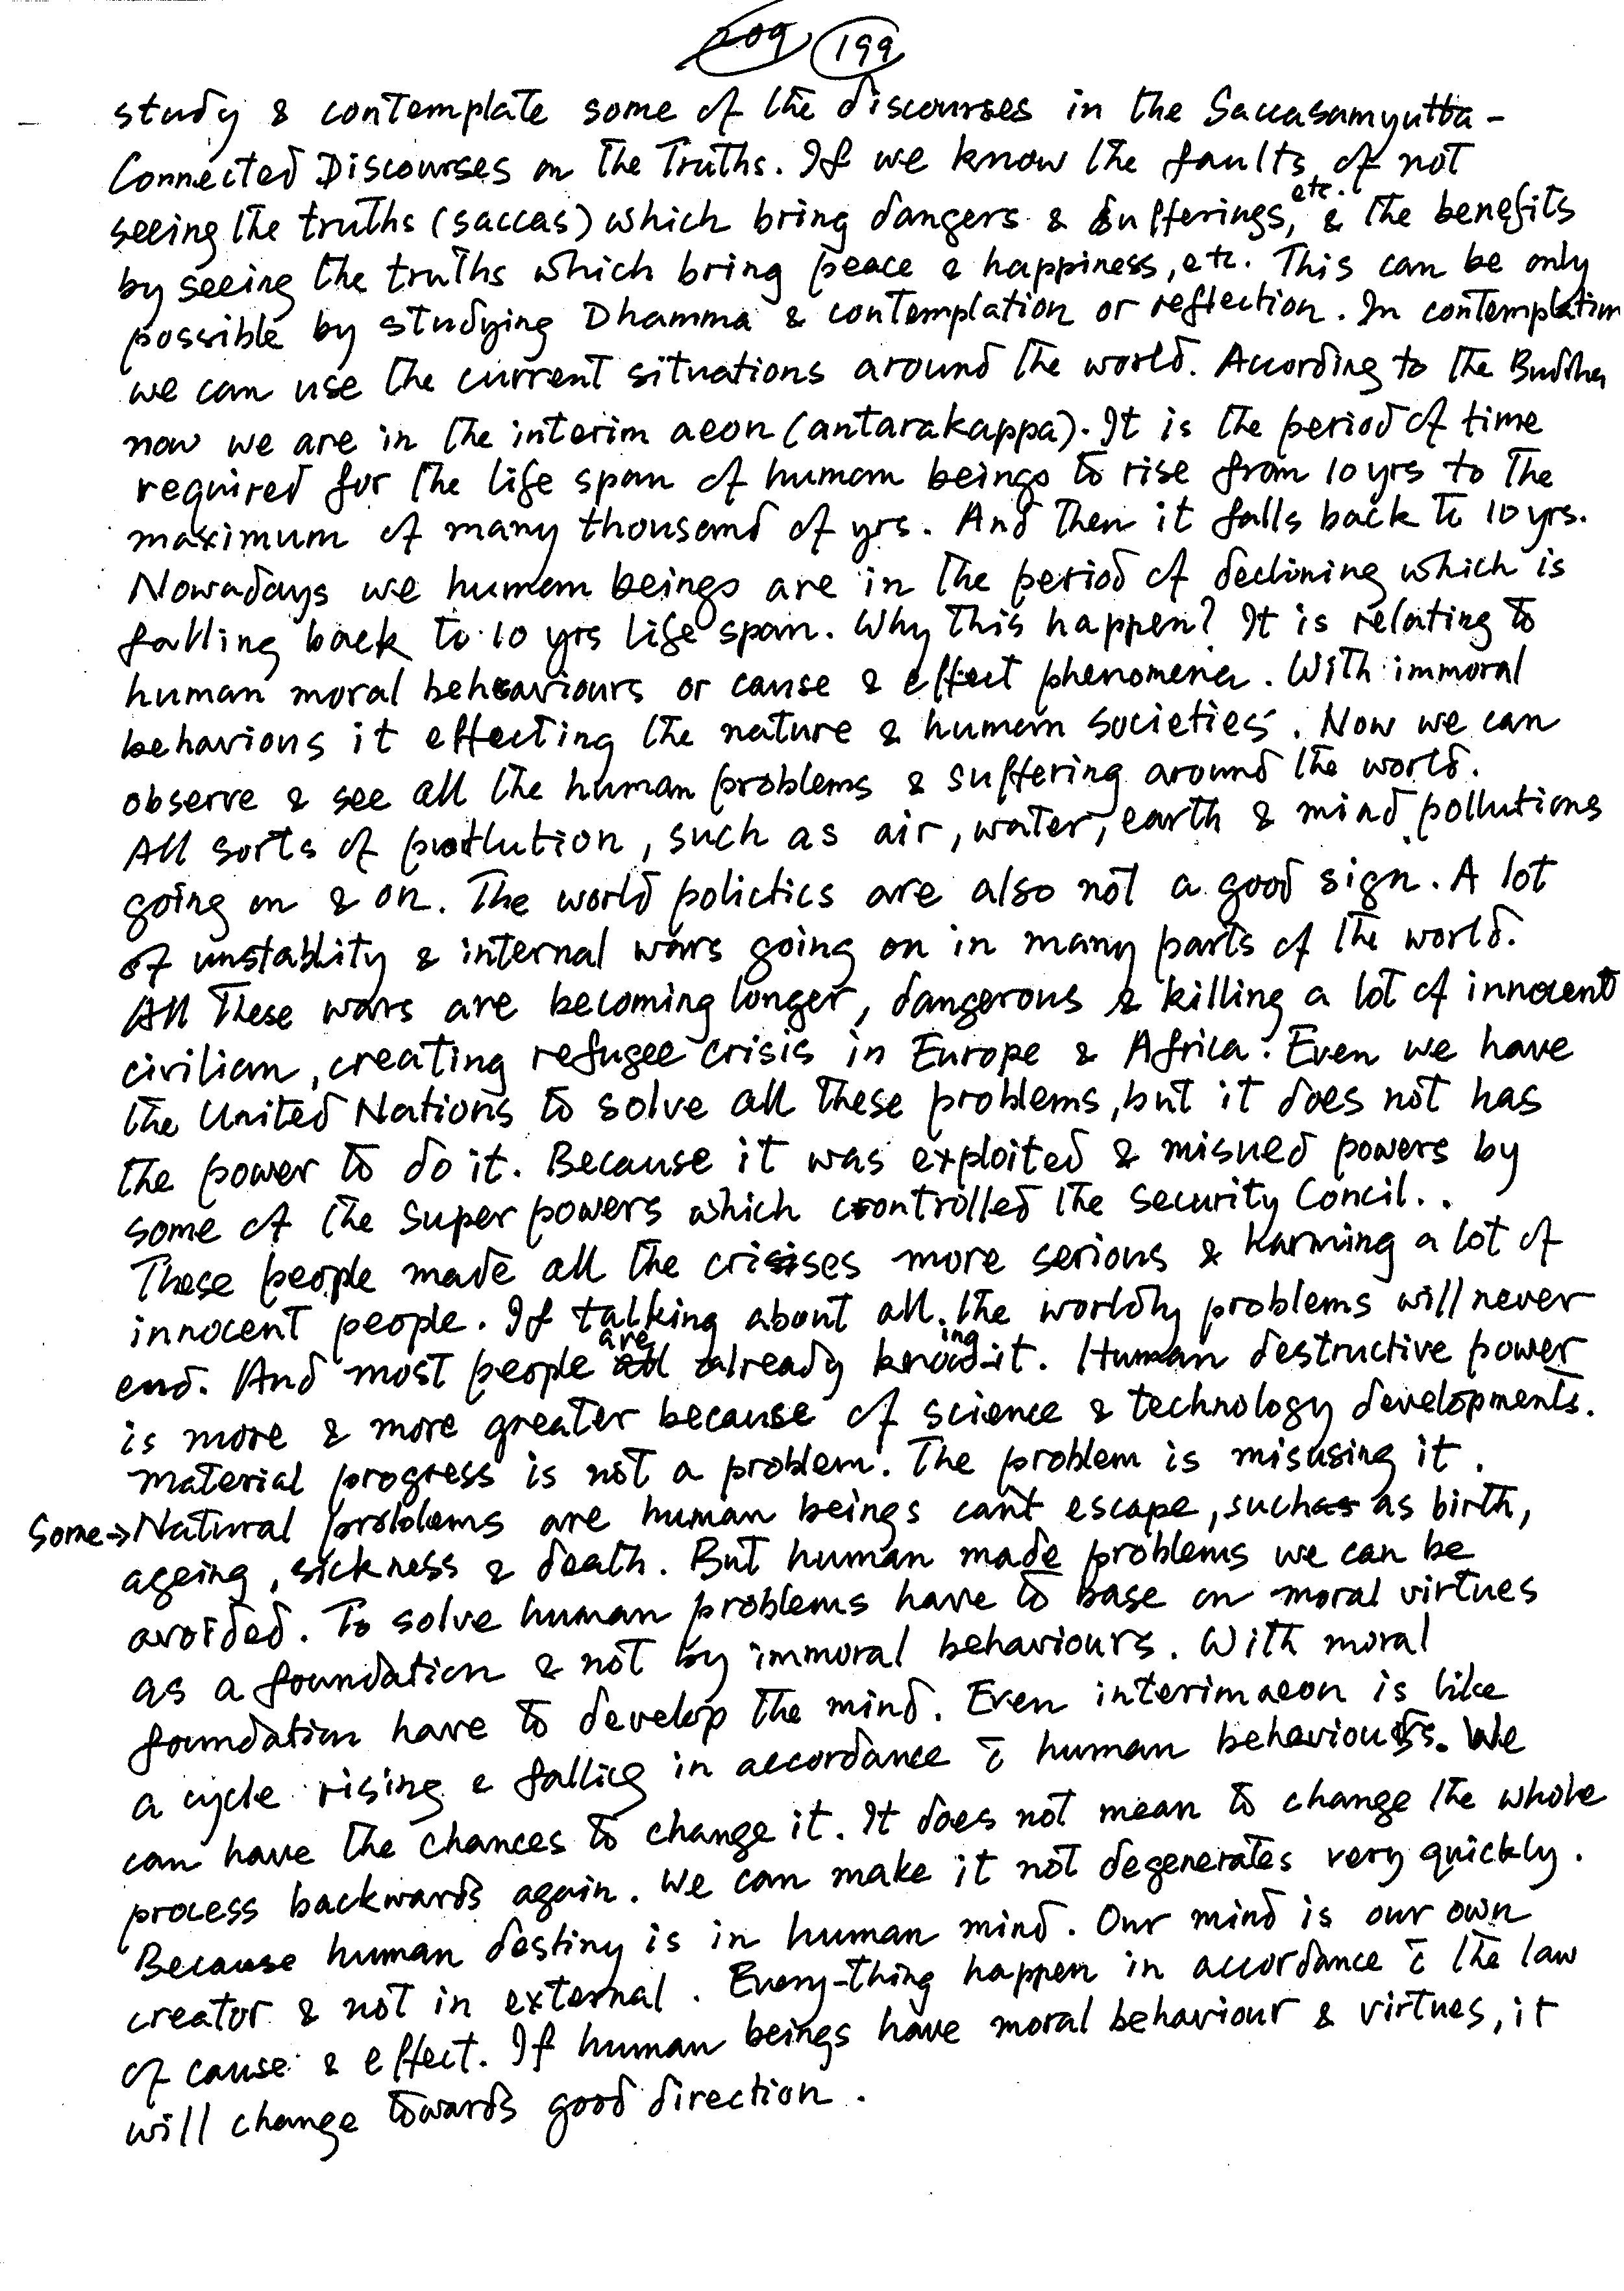 209 199
study & contemplate some of the discourses in the Saccasamyutta -
Connected Discourses on the Truths. If we know the faults of not
seeing the truths (saccas) which bring dangers & sufferings, etc. & the benefits
by seeing the truths which bring peace & happiness, etc. This can be only
possible by studying Dhamma & contemplation or reflection. In contemplation
we can use the current situations around the world. According to the Buddha
now we are in the interim aeon (antarakappa). It is the period of time
required for the life span of human beings to rise from 10 yrs to the
maximum of many thousand of yrs. And then it falls back to 10 yrs.
Nowadays we human beings are in the period of declining which is
falling back to 10 yrs life span. Why this happen? It is relating to
human moral behaviours or cause & effect phenomena. With immoral
behavious it effecting the nature & human societies. Now we can
observe & see all the human problems & suffering around the world.
All sorts of pollution, such as air, water, earth & mind pollutions
going on & on. The world polictics are also not a good sign. A lot
of unstablity & internal wars going on in many parts of the world.
All these wars are becoming longer, dangerous & killing a lot of innocent
civilian, creating refugee crisis in Europe & Africa. Even we have
the United Nations to solve all these problems, but it does not has
the power to do it. Because it was exploited & misued powers by
some of the Super powers which controlled the Security Concil..
These people made all the crisises more serious & harming a lot of
innocent people. If talking about all the worldly problems will never
end. And most people are already knowing it. Human destructive power
is more & more greater because of science & technology developments.
Material progress is not a problem. The problem is misusing it.
Some → Natural problems are human beings can't escape, such as birth,
ageing, sickness & death. But human made problems we can be
avoided. To solve human problems have to base on moral virtues
as a foundation & not by immoral behaviours. With moral
foundation have to develop the mind. Even interim aeon is like
a cycle rising & fallig in accordance c̄ human behaviours. We
can have the chances to change it. It does not mean to change the whole
process backwards again. We can make it not degenerates very quickly.
Because human destiny is in human mind. Our mind is our own
creator & not in external. Every-thing happen in accordance c̄ the law
of cause & effect. If human beings have moral behaviour & virtues, it
will change towards good direction.